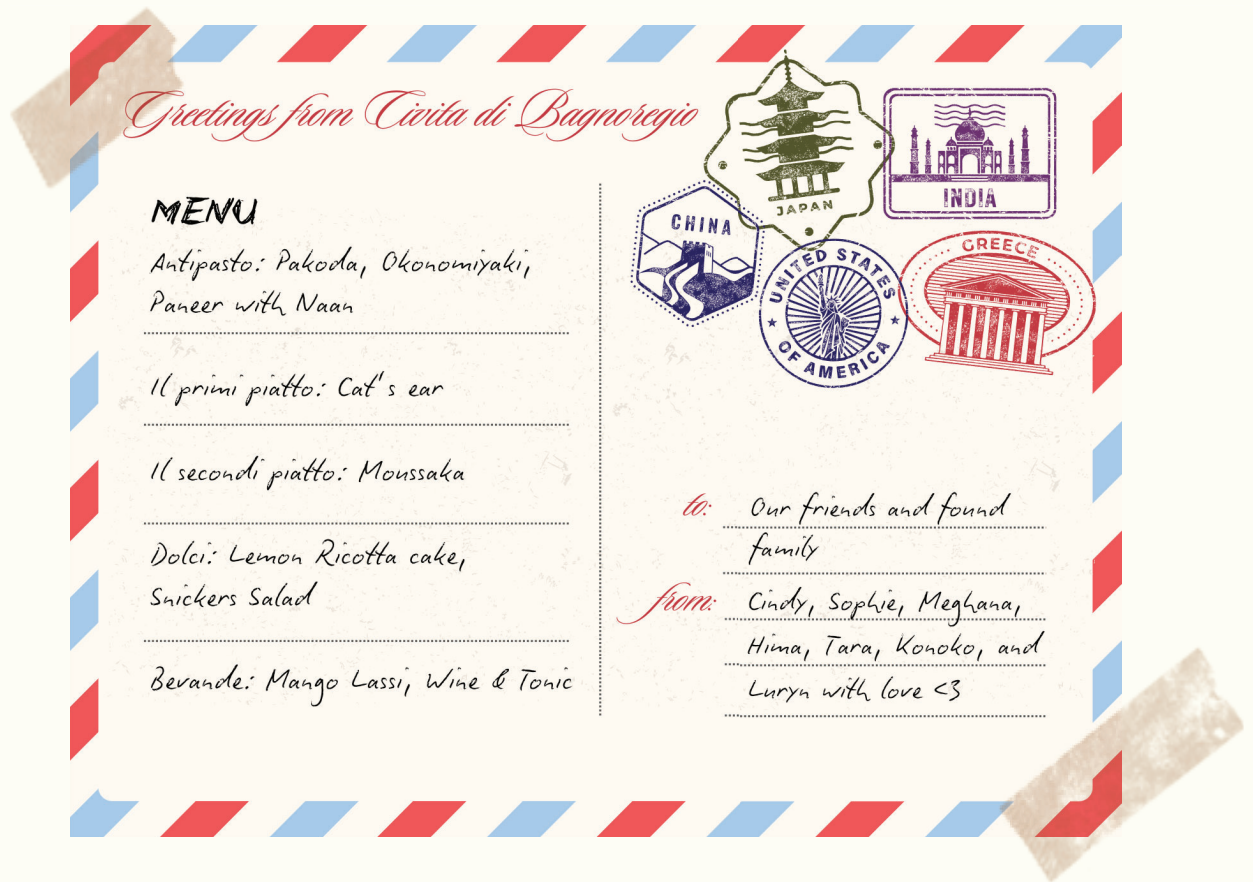 Greetings from Civita di Bagnoregio
MENU
Antipasto: Pakoda, Okonomiyaki,
Paneer with Naan
Il primi piatto: Cat's ear
Il secondi piatto: Moussaka
Dolci: Lemon Ricotta cake,
Snickers Salad
Bevande: Mango Lassi, Wine & Tonic
JAPAN
INDIA
CHINA
UNITED STATES
OF AMERICA
GREECE
to: Our friends and found
family
from: Cindy, Sophie, Meghana,
Hima, Tara, Konoko, and
Luryn with love <3